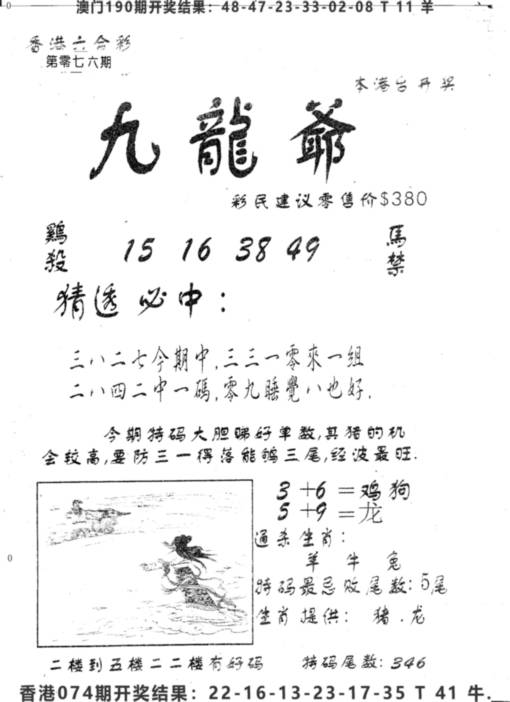 澳门190期开奖结果：48-47-23-33-02-08 T 11 羊
香港六合彩
第零七六期
本港台开奖
九龍爺
彩民建议零售价$380
鷄殺 15 16 38 49 馬禁
猜透必中：
三八二七今期中,三三一零來一组
二八四二中一碼,零九睡覺八也好.
今期特码大胆睇好单数,其猪的机
会较高,要防三一得落能鸭三尾,经波最旺.
3+6=鸡狗
5+9=龙
通杀生肖：
羊 牛 兔
特码最忌败尾数：5尾
生肖提供：猪.龙
二楼到五楼二二楼有好码 特码尾数：346
香港074期开奖结果：22-16-13-23-17-35 T 41 牛.
0
0